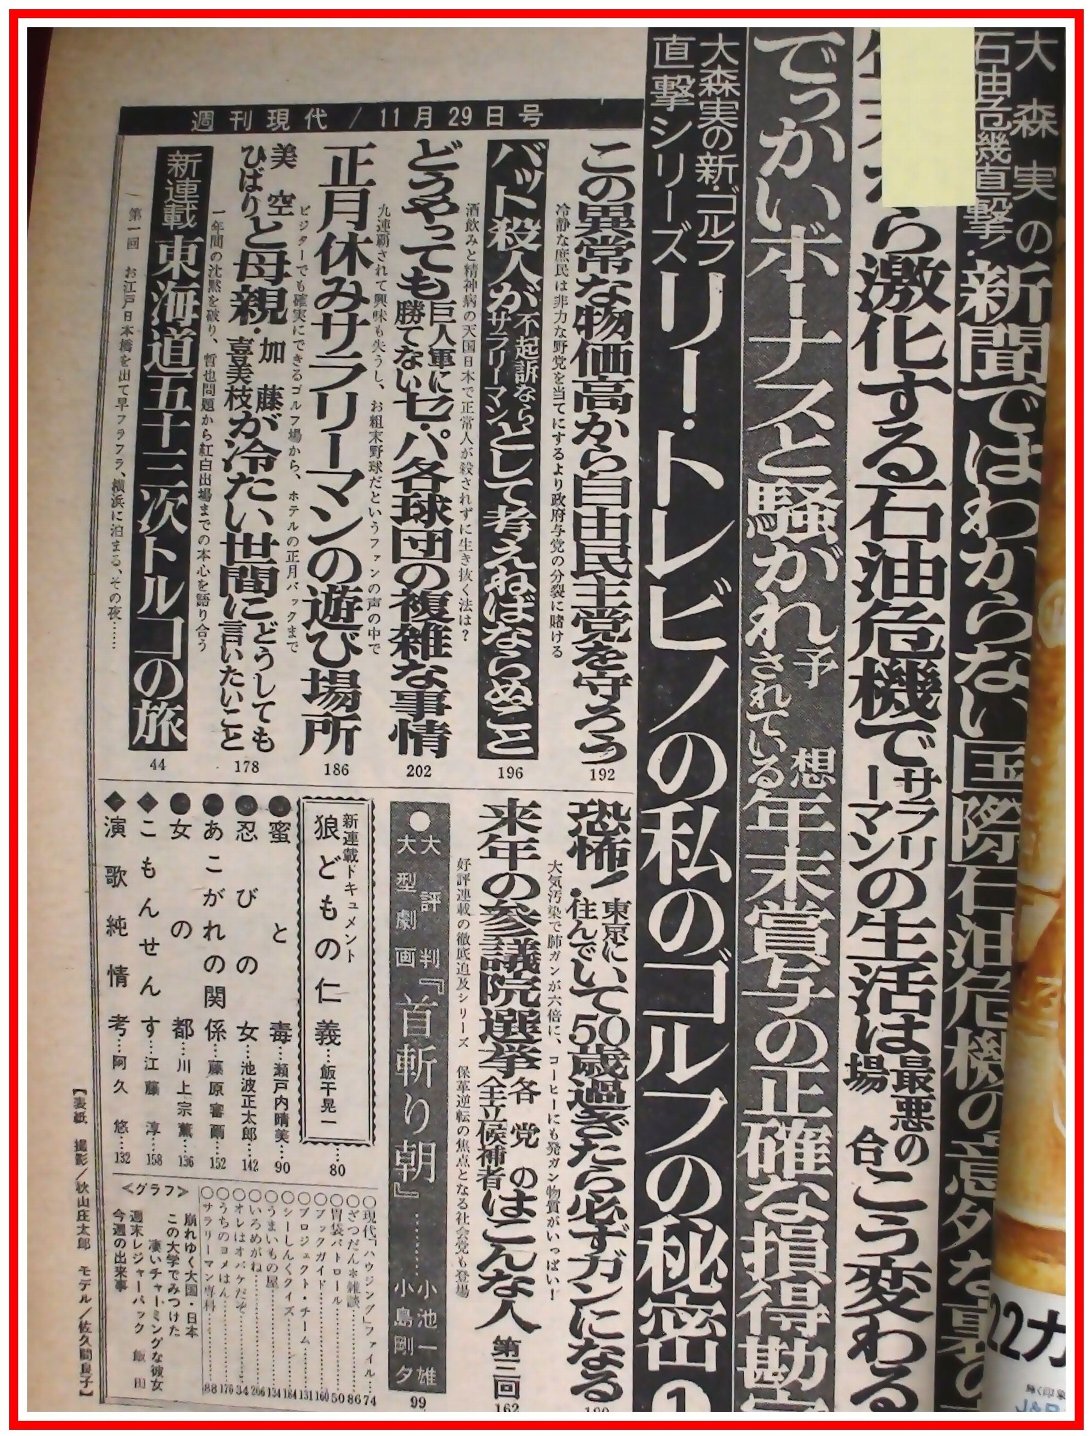 大森実の
石油危機直撃!
新聞ではわからない国際石油危機の意外な裏の
ら激化する石油危機でサラリーマンの生活は最悪の場合こう変わる
でっかいボーナスと騒がれ予想されている年末賞与の正確な損得勘
大森実の新・ゴルフ
直撃シリーズ
リー・トレビノの私のゴルフの秘密①
週刊現代/11月29日号
この異常な物価高から自由民主党を守ろう
192
冷静な庶民は非力な野党を当てにするより政府与党の分裂に賭ける
バット殺人が不起訴ならサラリーマンとして考えねばならぬこと
196
酒飲みと精神病の天国日本で正常人が殺されずに生き抜く法は?
どうやっても巨人軍に勝てないセ・パ各球団の複雑な事情
202
九連覇されて興味も失うし、お粗末野球だというファンの声の中で
正月休みサラリーマンの遊び場所
186
ビジターでも確実にできるゴルフ場から、ホテルの正月パックまで
美空ひばりと母親・加藤喜美枝が冷たい世間にどうしても言いたいこと
178
一年間の沈黙を破り、哲也問題から紅白出場までの本心を語り合う
新連載 東海道五十三次トルコの旅
44
第一回 お江戸日本橋を出て早フラフラ、横浜に泊まる、その夜……
恐怖!東京に住んでいて50歳過ぎたら必ずガンになる
大気汚染で肺ガンが六倍に、コーヒーにも発ガン物質がいっぱい!
来年の参議院選挙各党の全立候補者はこんな人 第三回
162
好評連載の徹底追及シリーズ 保革逆転の焦点となる社会党も登場
●大評判
大型劇画『首斬り朝』……小池一雄
小島剛夕
99
新連載ドキュメント
狼どもの仁義…飯干晃一…80
●蜜と毒…瀬戸内晴美…90
●忍びの女…池波正太郎…142
●あこがれの関係…藤原審爾…152
●女の都…川上宗薫…136
◆こもんせんす…江藤淳…158
◆演歌純情考…阿久悠…132
○現代「ハウジング」ファイル…74
○ざつだん＊雑談…86
○胃袋パトロール…50
○ブックガイド…160
○プロジェクト・チーム…131
○シーしんくクイズ…184
○うまいもの屋…134
○いろめがね…206
○オレはオバケだぞ…34
○うちのヨメはん…176
○サラリーマン専科…88
<グラフ>
崩れゆく大国・日本
この大学でみつけた
凄いチャーミングな彼女
週末レジャーパック 飯田
今週の出来事
【表紙 撮影/秋山庄太郎 モデル/佐久間良子】
22カ
J&R